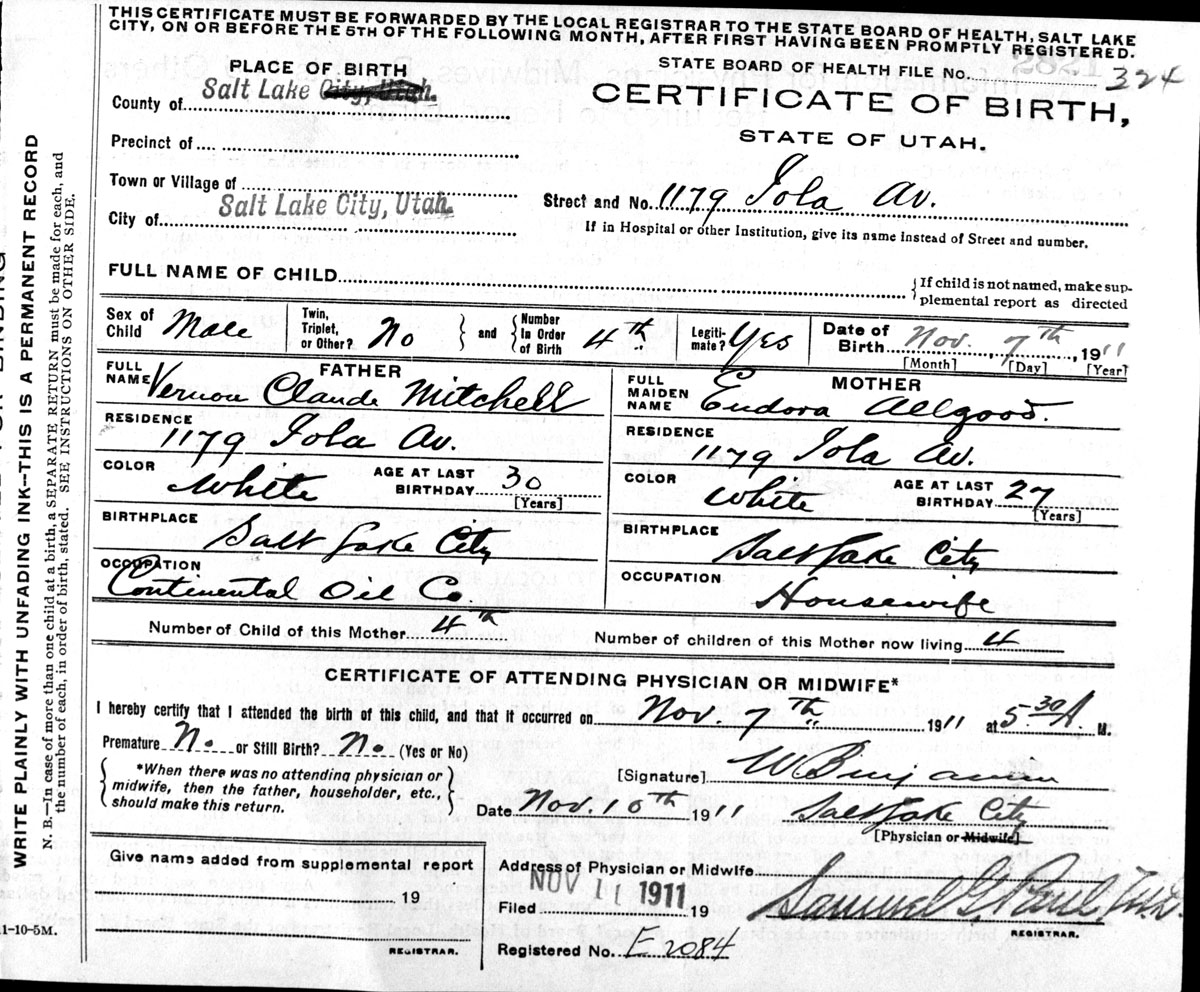 THIS CERTIFICATE MUST BE FORWARDED BY THE LOCAL REGISTRAR TO THE STATE BOARD OF HEALTH, SALT LAKE
CITY, ON OR BEFORE THE 5TH OF THE FOLLOWING MONTH, AFTER FIRST HAVING BEEN PROMPTLY REGISTERED.
STATE BOARD OF HEALTH FILE No. 324
PLACE OF BIRTH
CERTIFICATE OF BIRTH,
STATE OF UTAH.
County of Salt Lake City, Utah.
Precinct of
Town or Village of
City of Salt Lake City, Utah.
Street and No. 1179 Iola Av.
If in Hospital or other Institution, give its name instead of Street and number.
FULL NAME OF CHILD
If child is not named, make sup-
plemental report as directed
Sex of Child Male
Twin, Triplet, or Other? No and Number in Order of Birth 4th
Legiti-mate? Yes
Date of Birth Nov. 7th, 1911
[Month] [Day] [Year]
FATHER
FULL NAME Vernon Claude Mitchell
RESIDENCE
1179 Iola Av.
COLOR White AGE AT LAST BIRTHDAY 30
[Years]
BIRTHPLACE
Salt Lake City
OCCUPATION
Continental Oil Co.
MOTHER
FULL MAIDEN NAME Eudora Allgood.
RESIDENCE
1179 Iola Av.
COLOR White AGE AT LAST BIRTHDAY 27
[Years]
BIRTHPLACE
Salt Lake City
OCCUPATION
Housewife
Number of Child of this Mother 4th Number of children of this Mother now living 4
CERTIFICATE OF ATTENDING PHYSICIAN OR MIDWIFE*
I hereby certify that I attended the birth of this child, and that it occurred on Nov. 7th 1911 at 5 30 A. M.
Premature No or Still Birth? No (Yes or No)
*When there was no attending physician or
midwife, then the father, householder, etc.,
should make this return.
[Signature] W Benjamin
Date Nov. 10th 1911 Salt Lake City
[Physician or Midwife]
Give name added from supplemental report
19
REGISTRAR.
Address of Physician or Midwife
Filed NOV 1 1911 19 Samuel G. Paul, M.D.
REGISTRAR.
Registered No. E 2084
WRITE PLAINLY WITH UNFADING INK—THIS IS A PERMANENT RECORD
N. B.—In case of more than one child at a birth, a SEPARATE RETURN must be made for each, and
the number of each, in order of birth, stated. SEE INSTRUCTIONS ON OTHER SIDE.
1-10-5M.